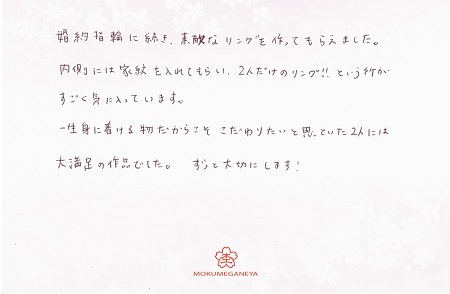 婚約指輪に続き、素敵なリングを作ってもらえました。
内側には家紋を入れてもらい、2人だけのリング!!という所が
すごく気に入っています。
一生身に着ける物だからこそこだわりたいと思っていた2人には
大満足の作品でした。 ずっと大切にします!
MOKUMEGANEYA